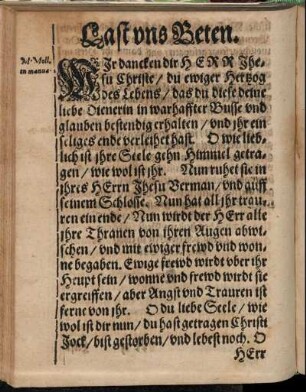 Last vns Beten.
in manua-
WIr dancken dir HERR Jhe-
su Christe / du ewiger Hertzog
des Lebens / das du diese deine
liebe Dienerin in warhaffter Busse vnd
glauben bestendig erhalten / vnd jhr ein
seliges ende verleihet hast. O wie lieb-
lich ist jhre Seele gehn Himmel getra-
gen / wie wol ist jhr. Nun ruhet sie in
jhres HErrn Jhesu Verman / vnd auff
seinem Schlosse. Nun hat all jhr trau-
ren ein ende / Nun wirdt der HErr alle
jhre Thränen von ihren Augen abwi-
schen / vnd mit ewiger frewd vnd won-
ne begaben. Ewige frewd wirdt vber ihr
Heupt sein / wonne vnd frewd wirdt sie
ergreiffen / aber Angst vnd Trauren ist
ferne von jhr. O du liebe Seele / wie
wol ist dir nun / du hast getragen Christi
Jock / bist gestorben / vnd lebest noch. O
HErr